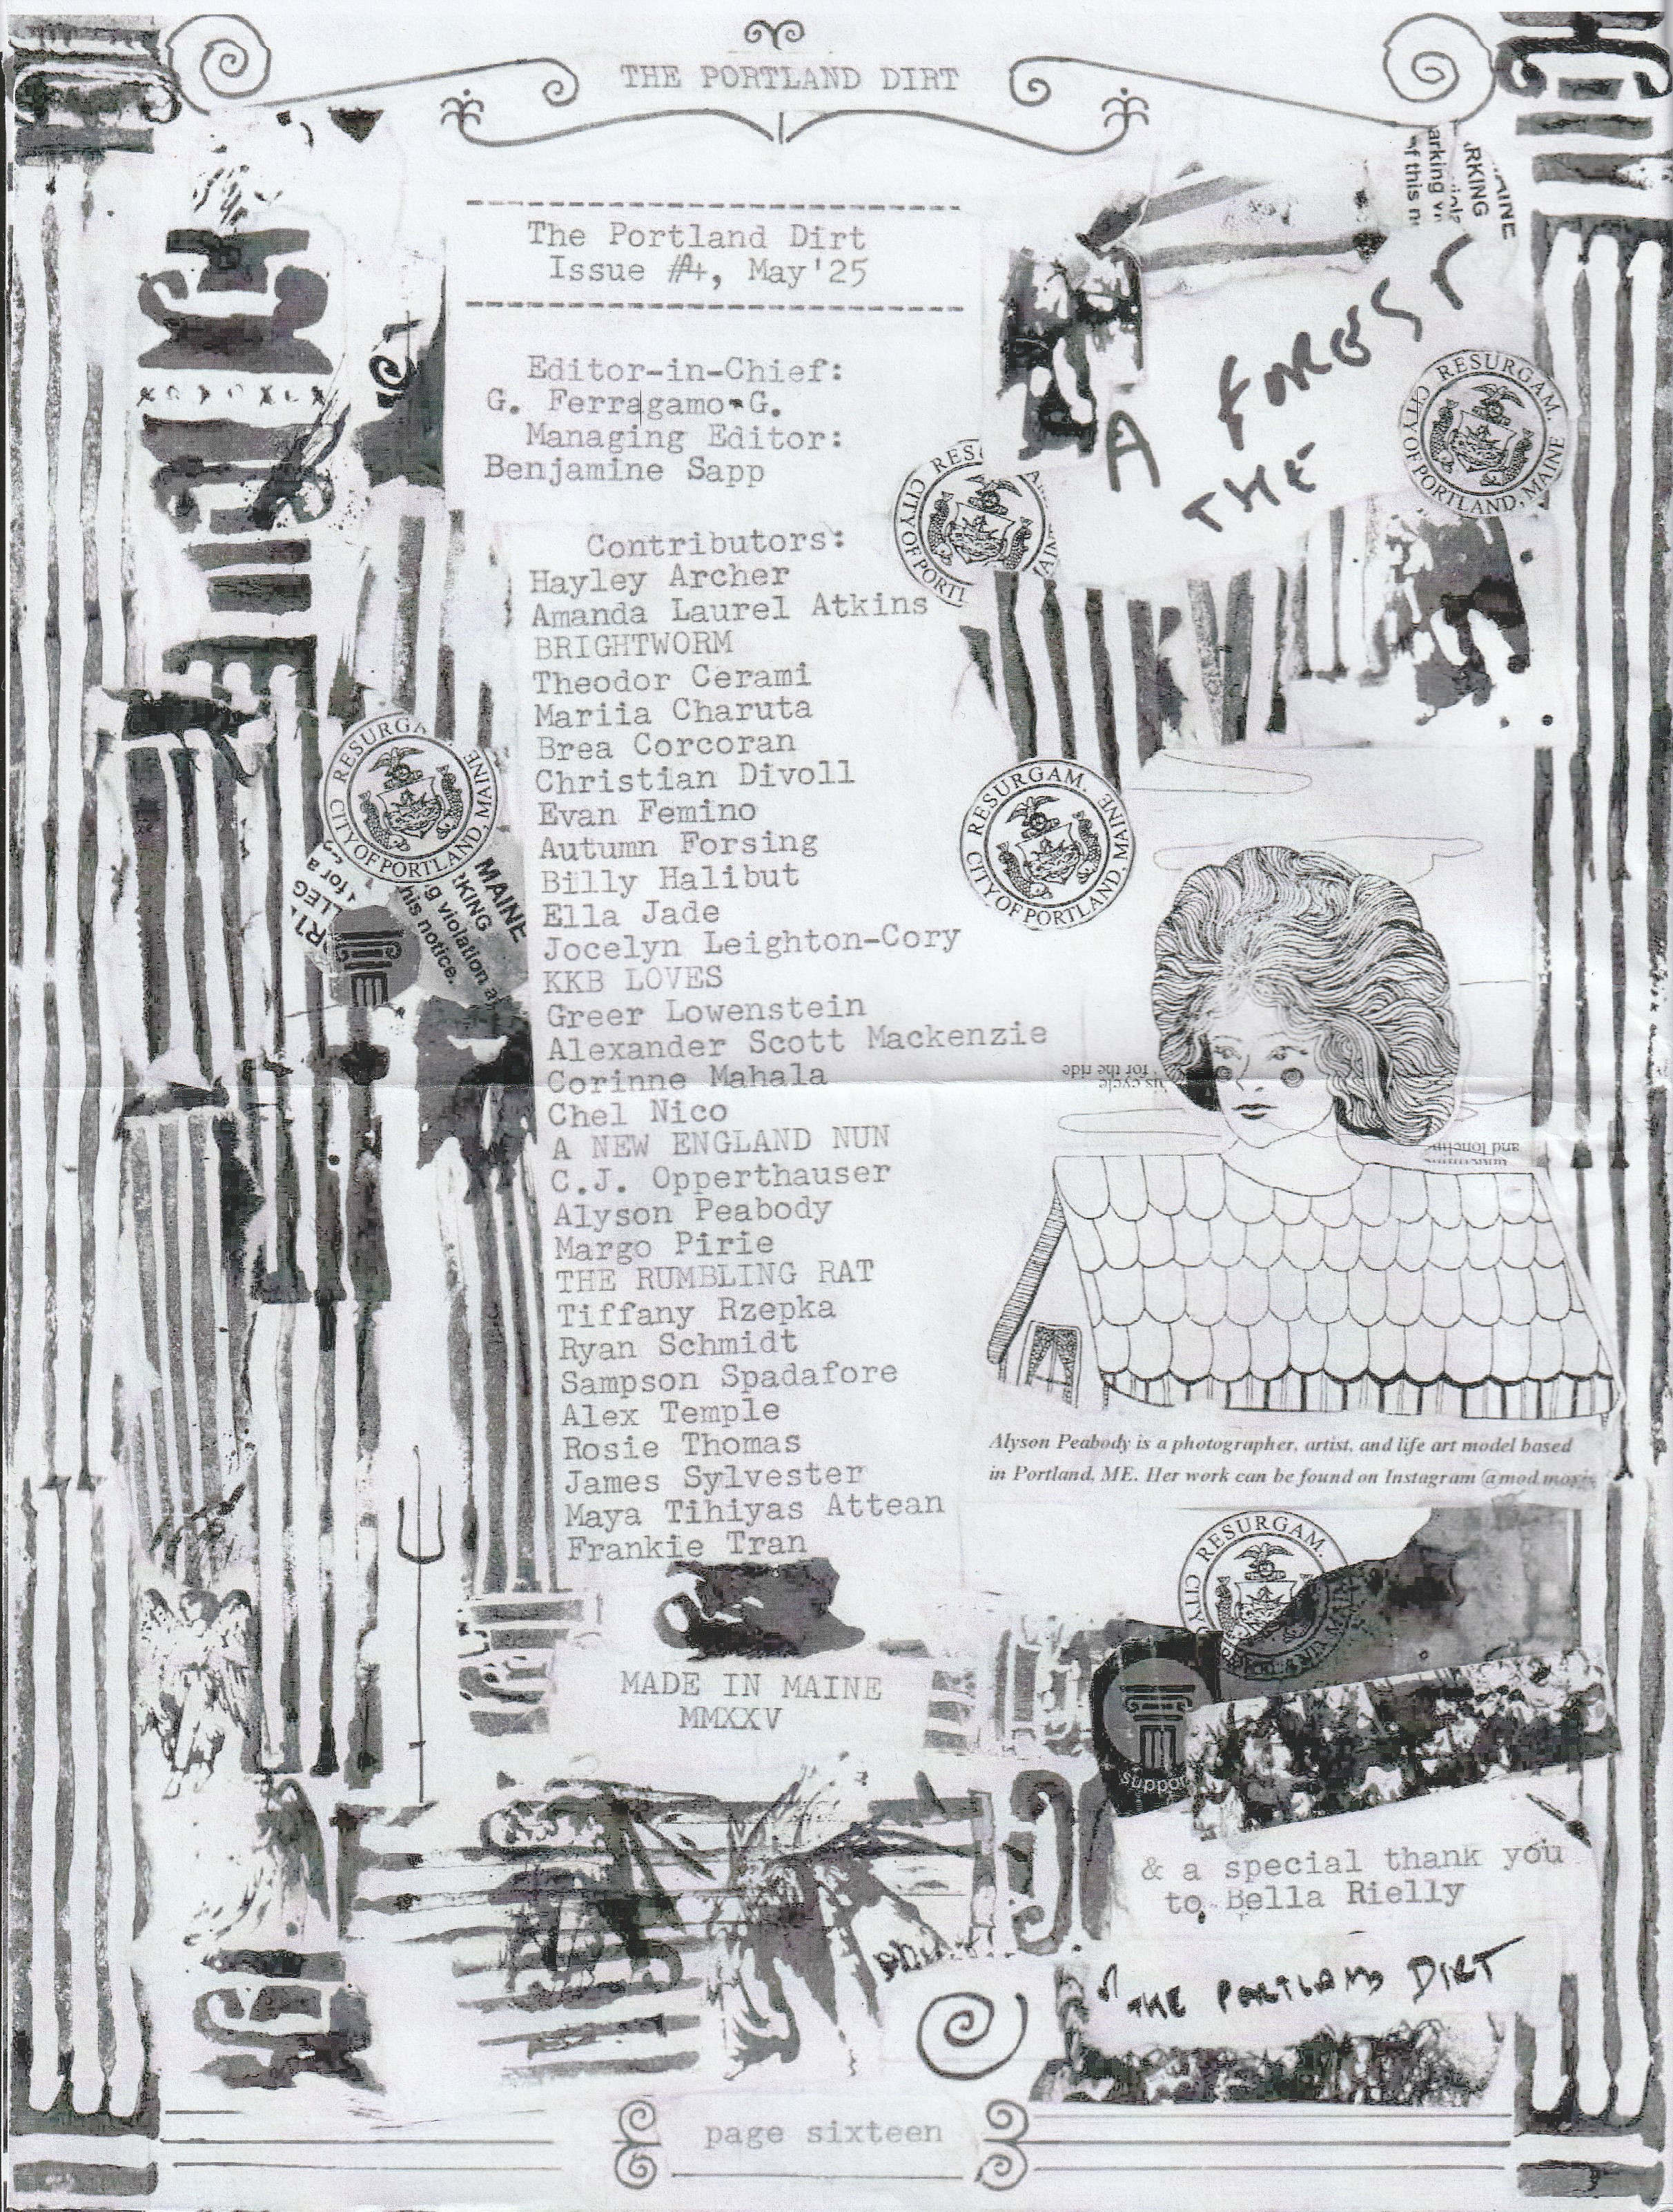 THE PORTLAND DIRT
The Portland Dirt
Issue #4, May'25
Editor-in-Chief:
G. Ferragamo-G.
Managing Editor:
Benjamine Sapp
Contributors:
Hayley Archer
Amanda Laurel Atkins
BRIGHTWORM
Theodor Cerami
Mariia Charuta
Brea Corcoran
Christian Divoll
Evan Femino
Autumn Forsing
Billy Halibut
Ella Jade
Jocelyn Leighton-Cory
KKB LOVES
Greer Lowenstein
Alexander Scott Mackenzie
Corinne Mahala
Chel Nico
A NEW ENGLAND NUN
C.J. Opperthauser
Alyson Peabody
Margo Pirie
THE RUMBLING RAT
Tiffany Rzepka
Ryan Schmidt
Sampson Spadafore
Alex Temple
Rosie Thomas
James Sylvester
Maya Tihiyas Attean
Frankie Tran
MADE IN MAINE
MMXXV
A FOREST
THE
RESURGAM.
CITY OF PORTLAND, MAINE
RESURGAM.
CITY OF PORTLAND, MAINE
RESURGA
CITY OF PORTLAND, MAINE
RES
CITY OF PORTL
MAINE
RKING
g violation a
his notice.
for a
LLEG
AINE
RKING
arking v
f this n
cycle
for the ride
and
Alyson Peabody is a photographer, artist, and life art model based
in Portland, ME. Her work can be found on Instagram @mod.moxie
RESURGAM.
CITY
support
& a special thank you
to Bella Rielly
THE PORTLAND DIRT
page sixteen